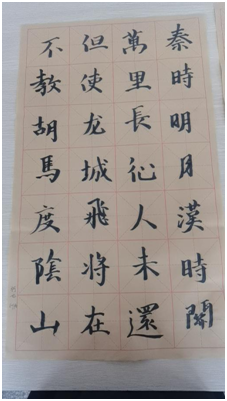 秦時明月漢時關
萬里長征人未還
但使龙城飛将在
不教胡馬度陰山